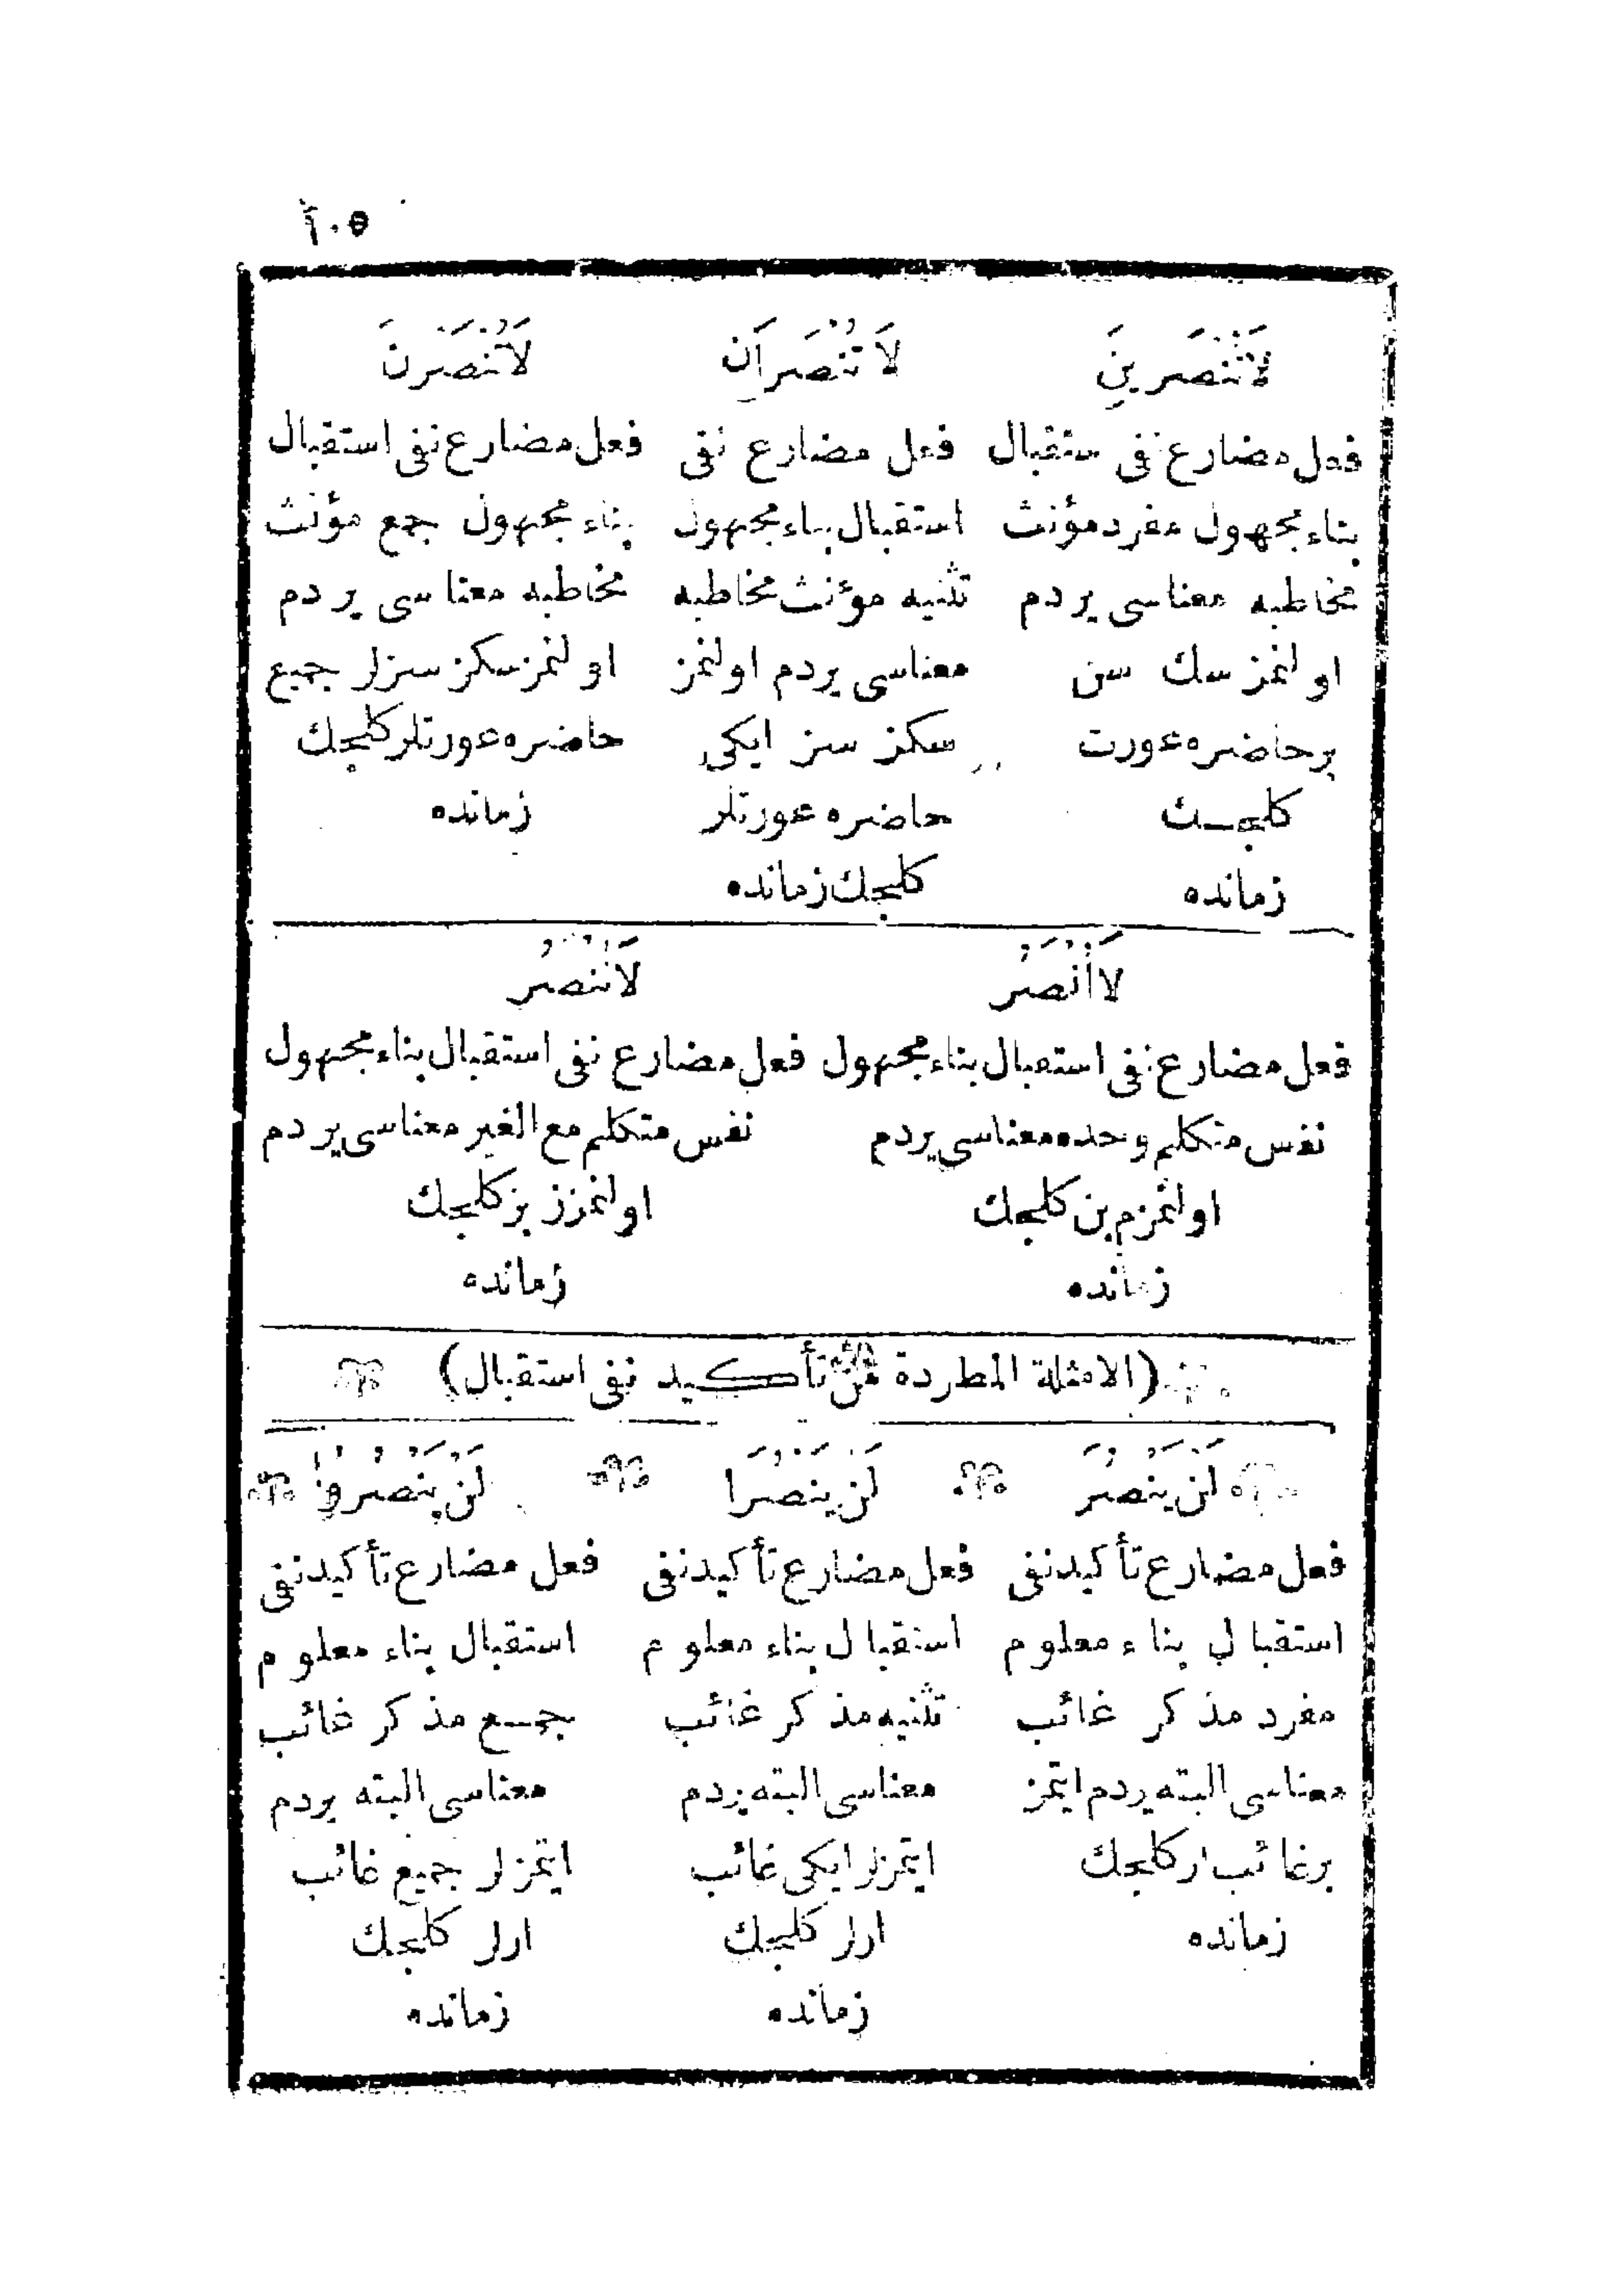 ١٠٥
لَاتُنْصَرِينَ
فعل مضارع نفى ستقبال
بناء مجهول مفرد مؤنث
مخاطبه معناسى يردم
اولنمز سك سن
بر حاضره عورت
كلهجـك
زمانده
لَا تُنْصَرَانِ
فعل مضارع نفى
استقبال بناء مجهول
تثنيه مؤنث مخاطبه
معناسى يردم اولنمز
سكز سز ايكى
حاضره عورتلر
كلهجك زمانده
لَاتُنْصَرْنَ
فعل مضارع نفى استقبال
بناء مجهول جمع مؤنث
مخاطبه معناسى يردم
اولنمز سكز سزلر جميع
حاضره عورتلر كلهجك
زمانده
لَااُنْصَرُ
فعل مضارع نفى استقبال بناء مجهول
نفس متكلم وحده معناسى يردم
اولنمزم بن كلهجك
زمانده
لَانُنْصَرُ
فعل مضارع نفى استقبال بناء مجهول
نفس متكلم مع الغير معناسى يردم
اولنمزز بز كلهجك
زمانده
(الامثلة المطردة من تأكيد نفى استقبال)
لَنْ يَنْصُرَ
فعل مضارع تأكيد نفى
استقبال بناء معلوم
مفرد مذكر غائب
معناسى البته يردم ايتمز
بر غائب ار كلهجك
زمانده
لَنْ يَنْصُرَا
فعل مضارع تأكيد نفى
استقبال بناء معلوم
تثنيه مذكر غائب
معناسى البته يردم
ايتمزلر ايكى غائب
ارلر كلهجك
زمانده
لَنْ يَنْصُرُوا
فعل مضارع تأكيد نفى
استقبال بناء معلوم
جمع مذكر غائب
معناسى البته يردم
ايتمزلر جميع غائب
ارلر كلهجك
زمانده